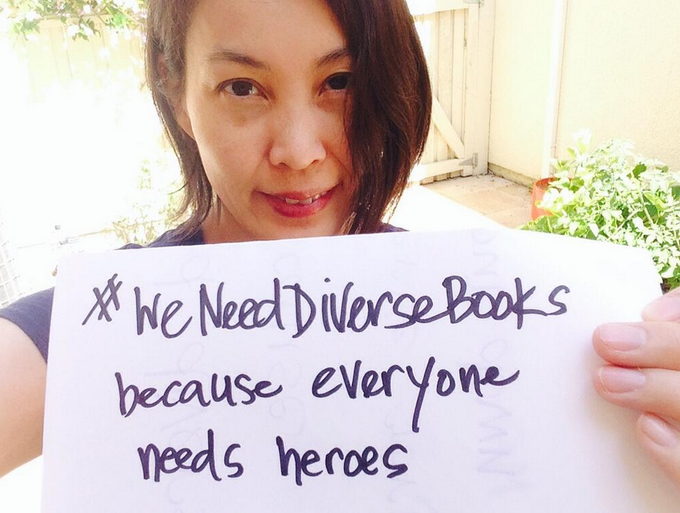 #WeNeedDiverseBooks
because everyone
needs heroes